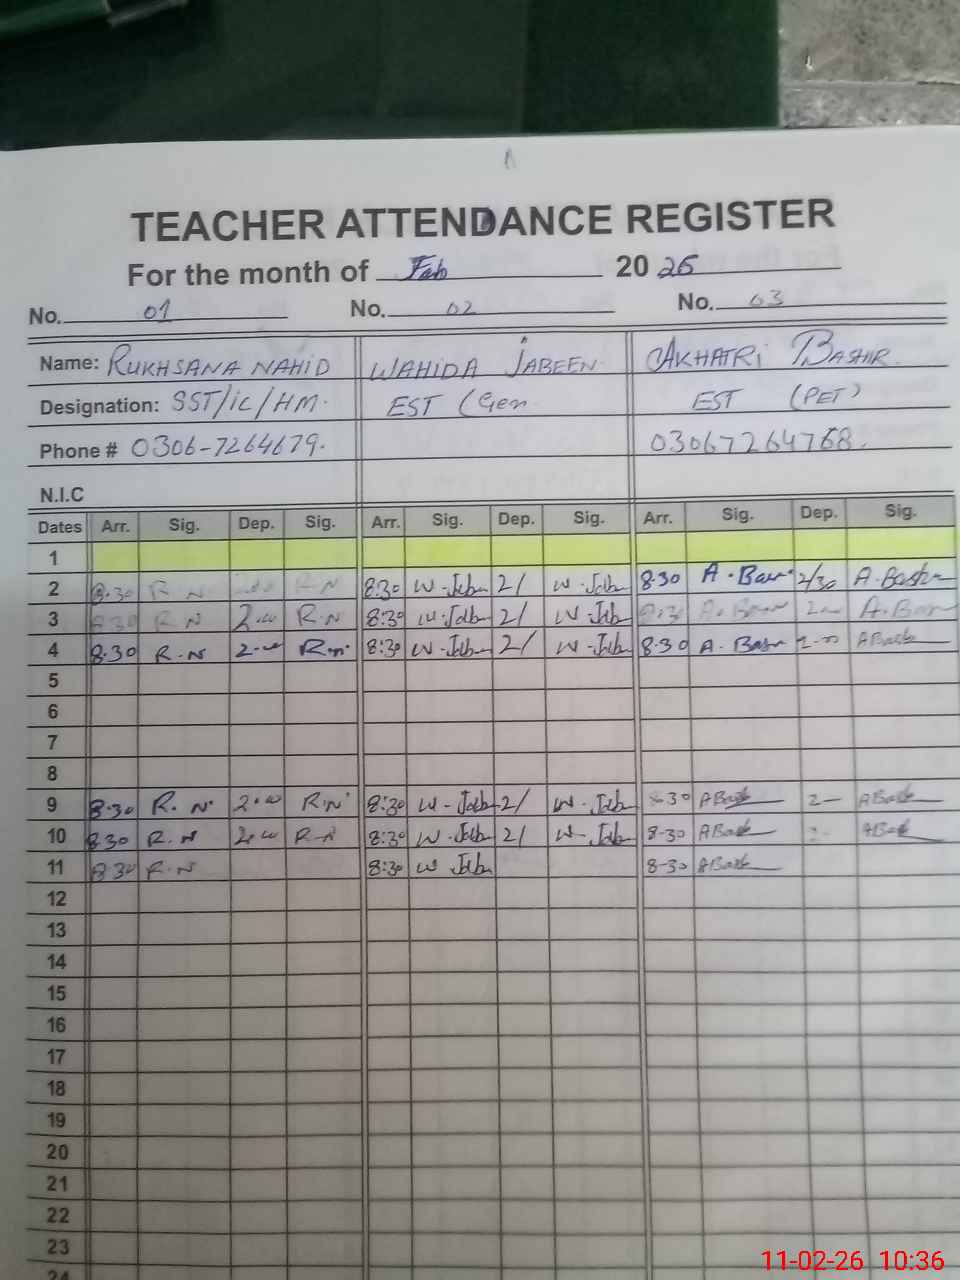 TEACHER ATTENDANCE REGISTER
For the month of Feb 2026
No. 01 No. 02 No. 03
Name: RUKHSANA NAHID WAHIDA JABEEN AKHATRI BASHIR
Designation: SST/ic/HM. EST (Gen EST (PET)
Phone # 0306-7264679. 03067264768.
N.I.C
Dates Arr. Sig. Dep. Sig. Arr. Sig. Dep. Sig. Arr. Sig. Dep. Sig.
1
2 8:30 R N R N 8:30 W-Jabn 2/ W-Jabn 8.30 A.Basr 2/30 A.Bashr
3 8:30 R N 2.00 R.N 8:30 W-Jabn 2/ W-Jabn 8:30 A.Basr 2- A.Basr
4 8.30 R.N 2-00 R.n. 8:30 W-Jabn 2/ W-Jabn 8-30 A.Basr 2-00 ABash
5
6
7
8
9 8.30 R.N. 2.00 R.N. 8:30 W-Jabn 2/ W-Jabn 8-30 ABash 2- ABash
10 8.30 R.N 2.00 R-N 8:30 W-Jabn 2/ W-Jabn 8-30 ABash 2- ABash
11 8:30 R-N 8:30 W Jabn 8-30 ABash
12
13
14
15
16
17
18
19
20
21
22
23
24
11-02-26 10:36